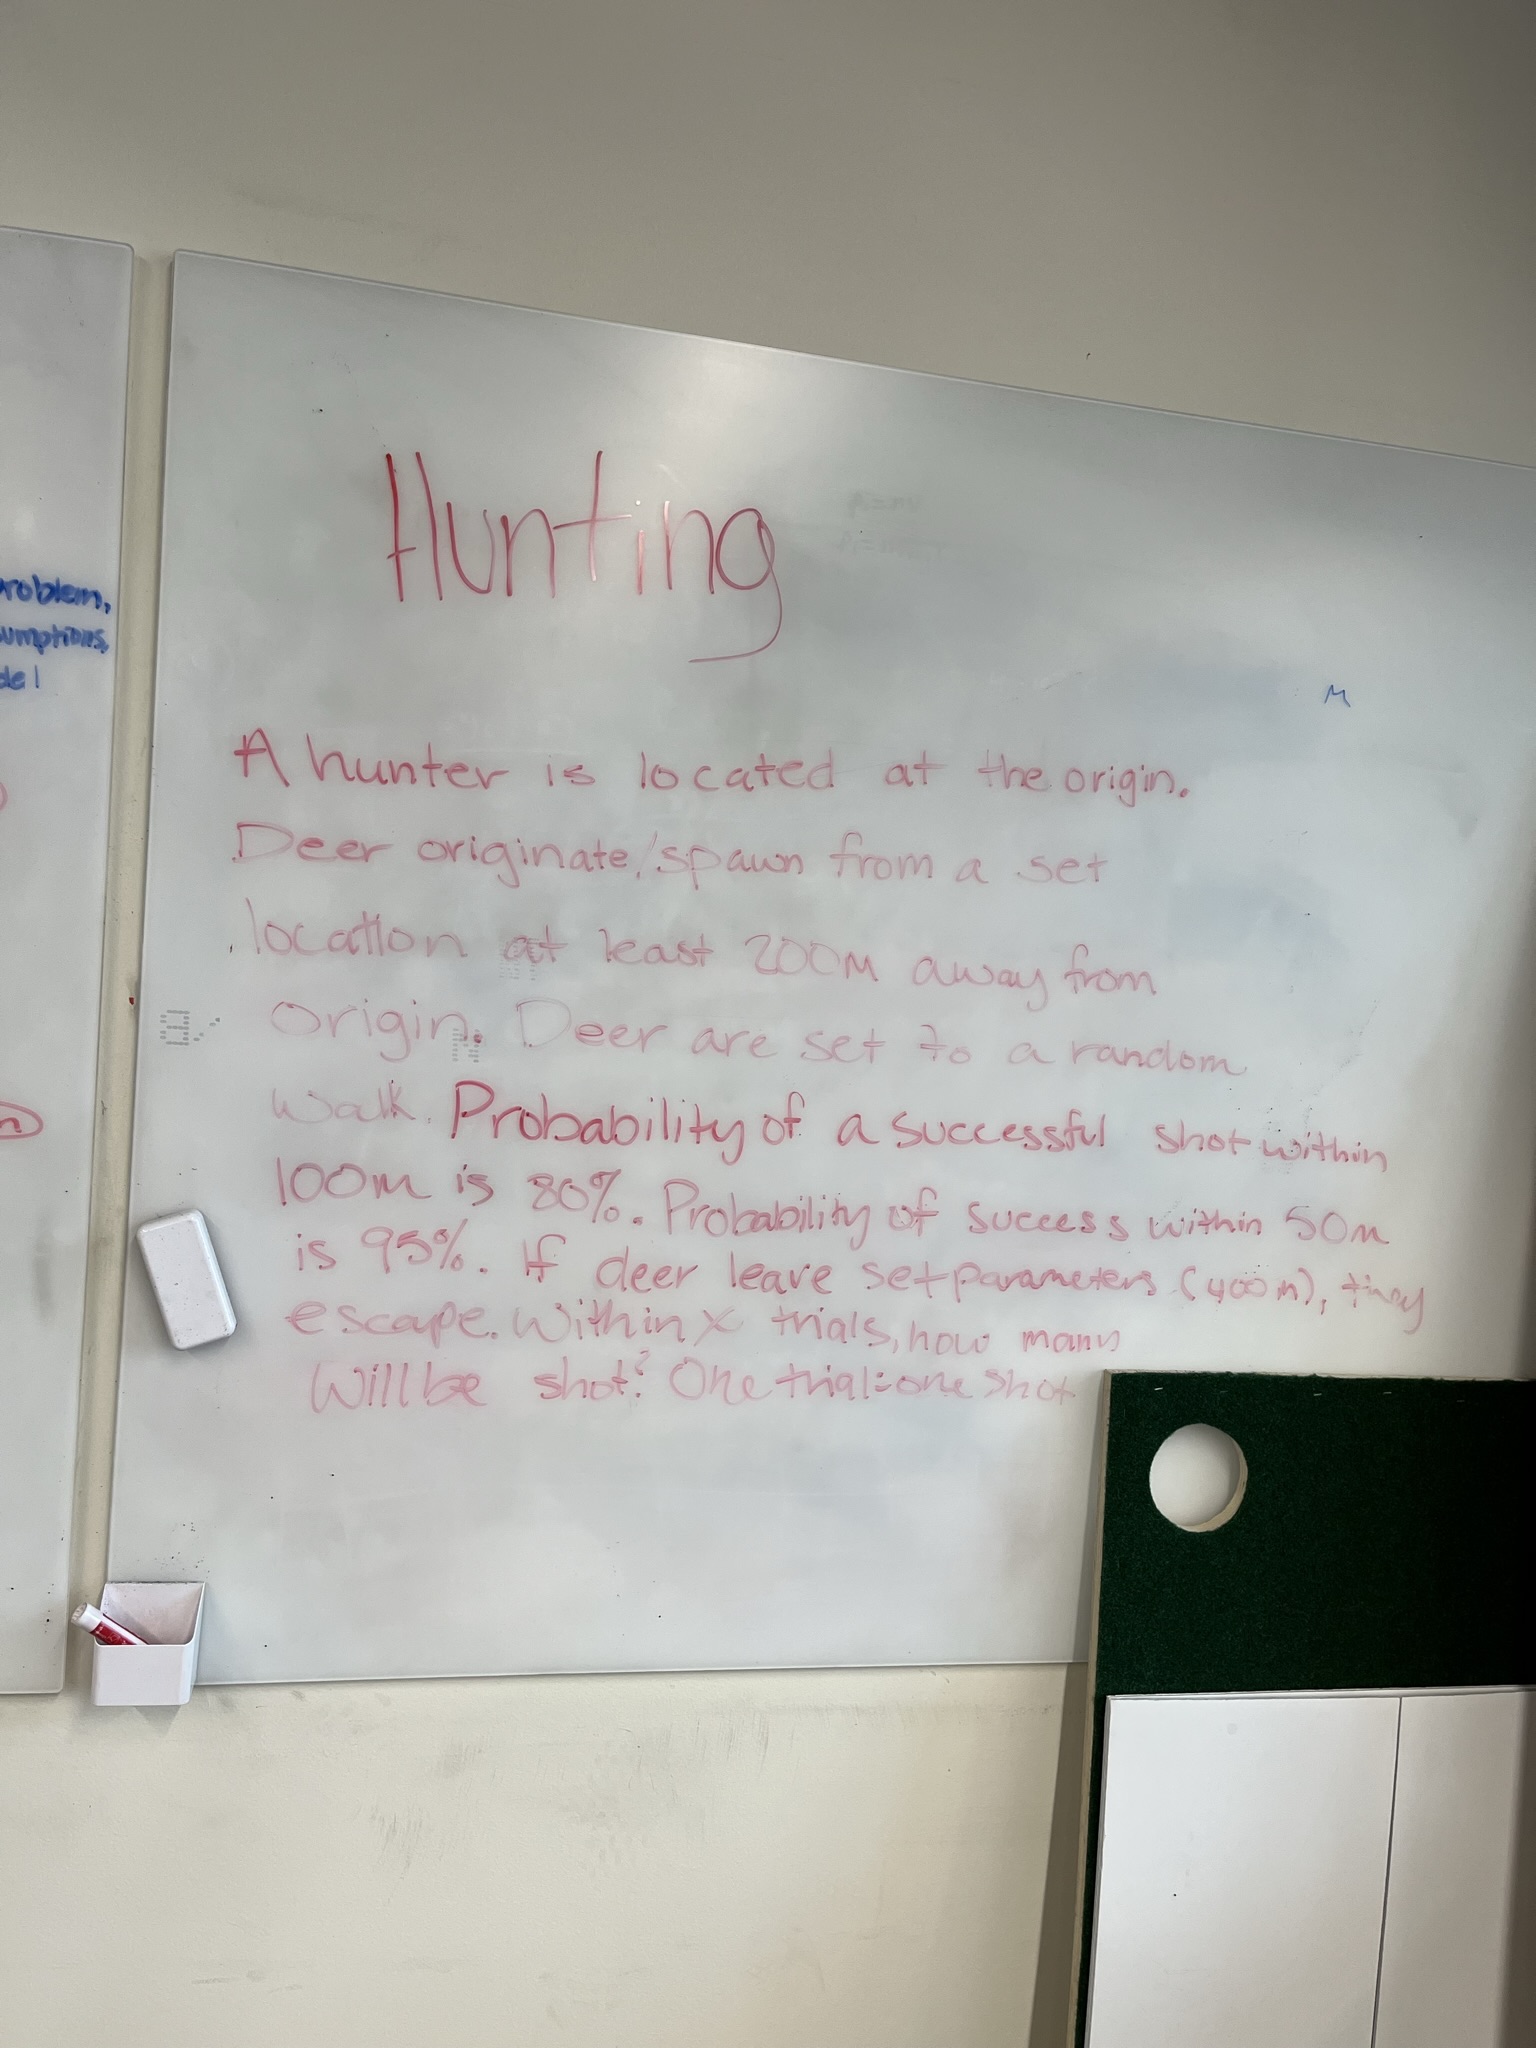 Hunting
A hunter is located at the origin.
Deer originate/spawn from a set
location at least 200m away from
origin. Deer are set to a random
walk. Probability of a successful shot within
100m is 80%. Probability of success within 50m
is 95%. If deer leave set parameters (400m), they
escape. Within X trials, how many
will be shot? One trial=one shot
M
roblem,
umptions,
del